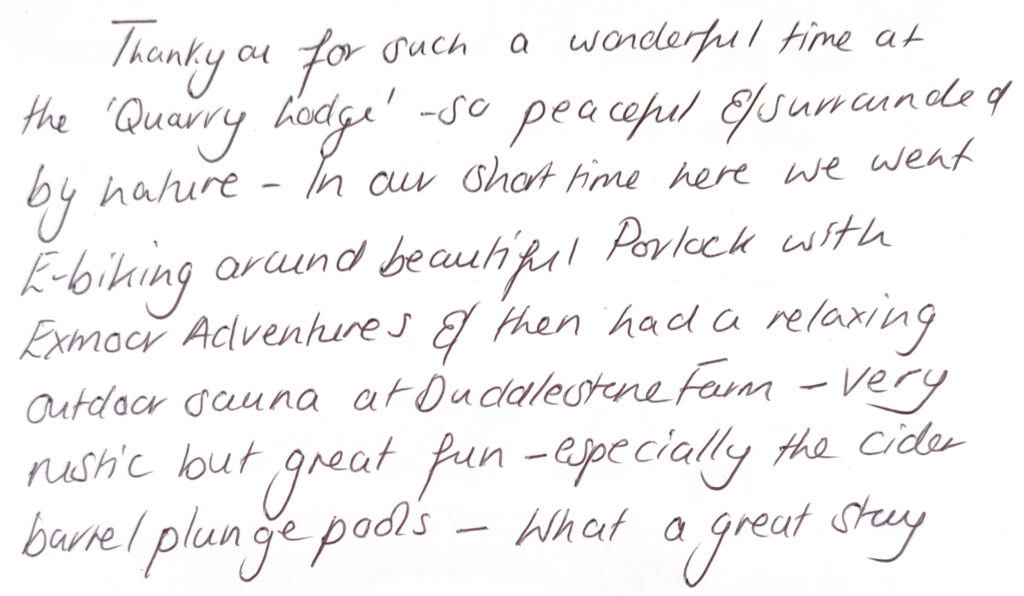 Thankyou for such a wonderful time at
the 'Quarry Lodge' - so peaceful & surrounded
by nature - In our short time here we went
E-biking around beautiful Porlock with
Exmoor Adventures & then had a relaxing
outdoor sauna at Duddlestone Farm - very
rustic but great fun - especially the cider
barrel plunge pools - What a great stay